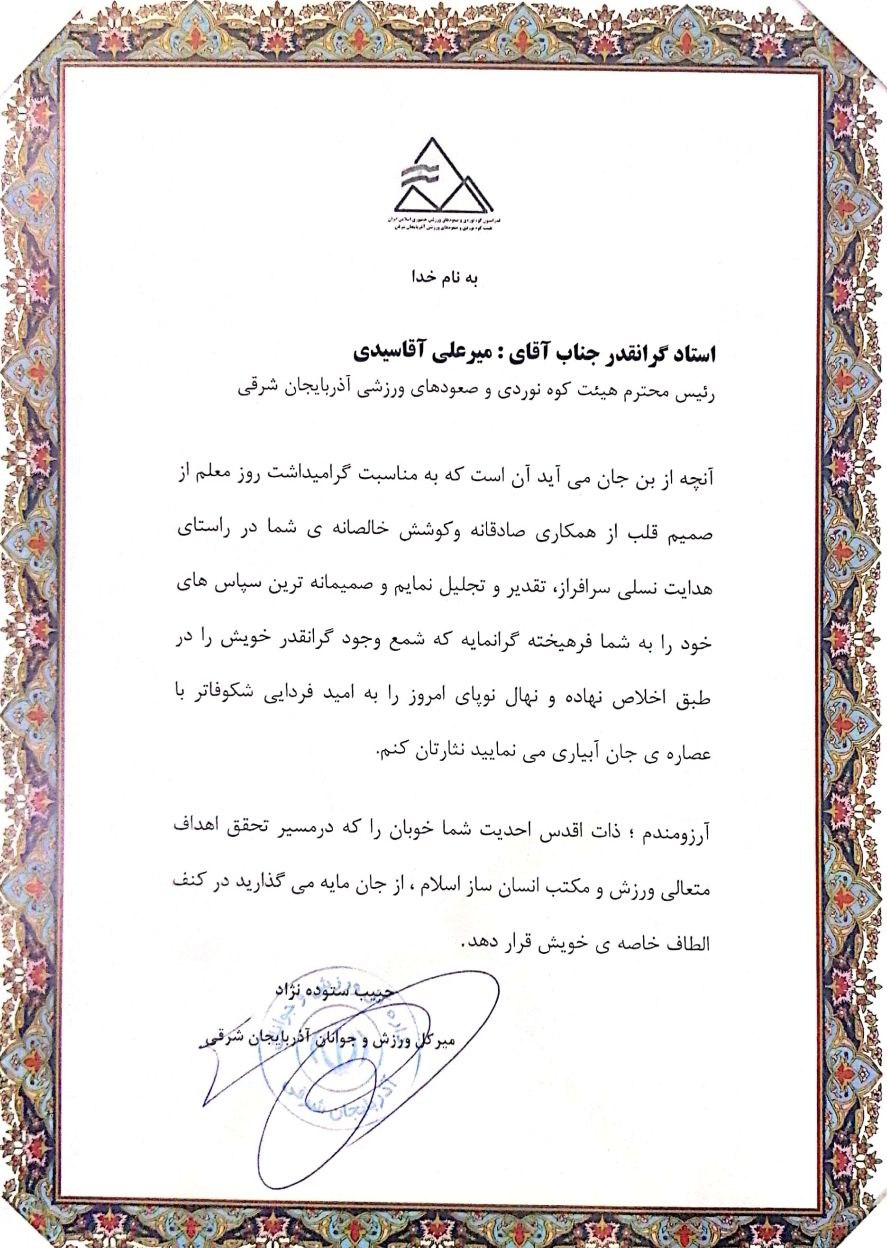 فدراسیون کوه نوردی و صعودهای ورزشی جمهوری اسلامی ایران
هیئت کوه نوردی و صعودهای ورزشی آذربایجان شرقی
به نام خدا
استاد گرانقدر جناب آقای : میرعلی آقاسیدی
رئیس محترم هیئت کوه نوردی و صعودهای ورزشی آذربایجان شرقی
آنچه از بن جان می آید آن است که به مناسبت گرامیداشت روز معلم از
صمیم قلب از همکاری صادقانه وکوشش خالصانه ی شما در راستای
هدایت نسلی سرافراز، تقدیر و تجلیل نمایم و صمیمانه ترین سپاس های
خود را به شما فرهیخته گرانمایه که شمع وجود گرانقدر خویش را در
طبق اخلاص نهاده و نهال نوپای امروز را به امید فردایی شکوفاتر با
عصاره ی جان آبیاری می نمایید نثارتان کنم.
آرزومندم ؛ ذات اقدس احدیت شما خوبان را که درمسیر تحقق اهداف
متعالی ورزش و مکتب انسان ساز اسلام ، از جان مایه می گذارید در کنف
الطاف خاصه ی خویش قرار دهد.
حبیب ستوده نژاد
میرکل ورزش و جوانان آذربایجان شرقی
ورزش و جوانان
آذربایجان شرقی